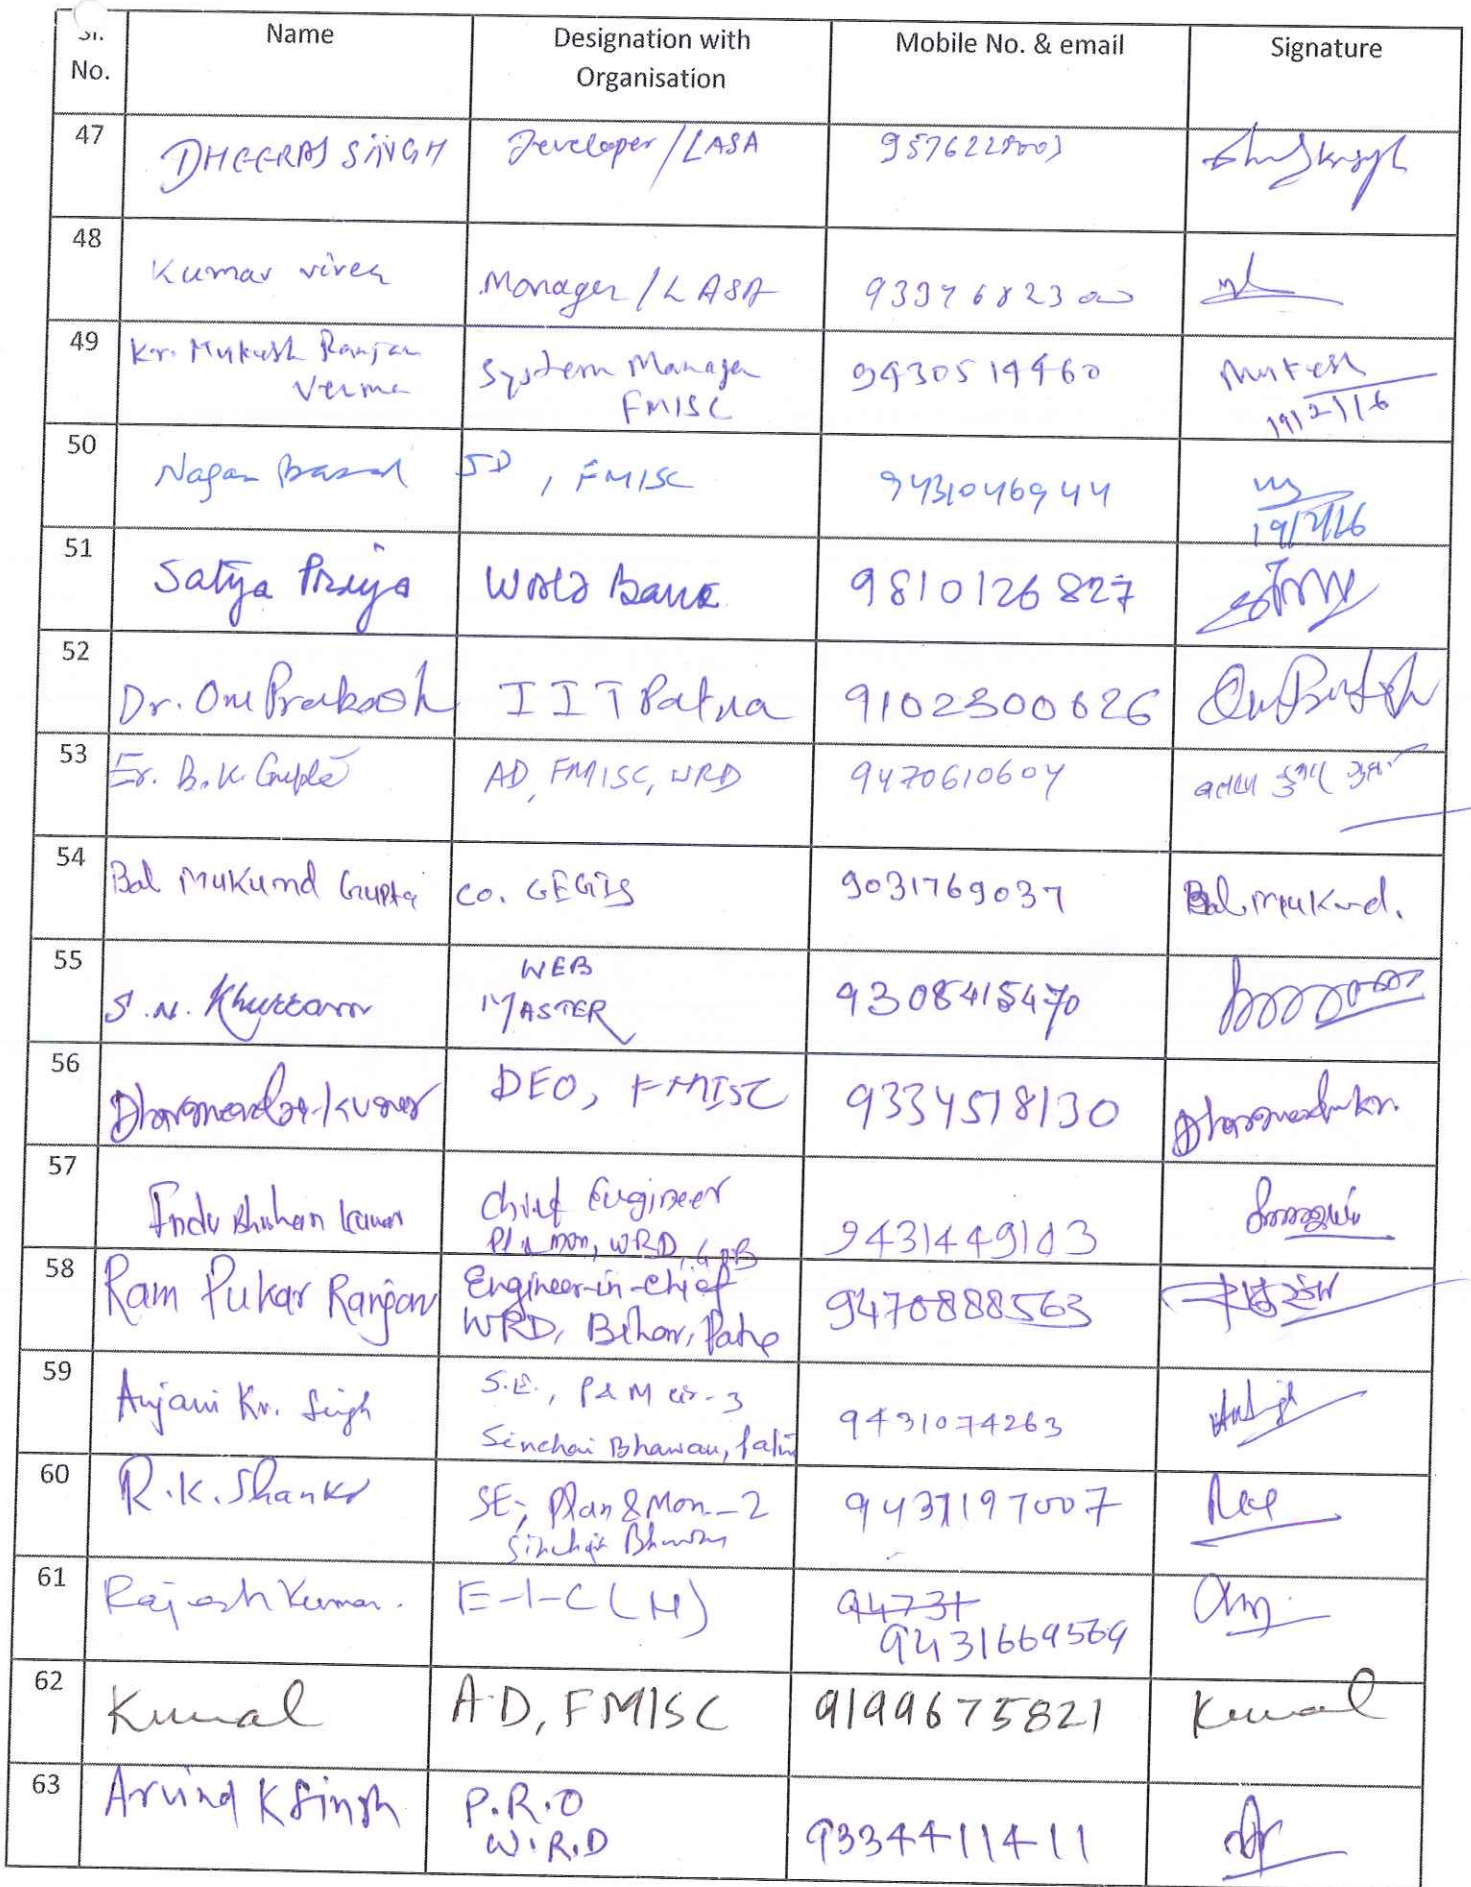 Sl. No. Name Designation with Organisation Mobile No. & email Signature
47 DHEERAJ SINGH Developer/LASA
48 Kumar vivek Manager/LASA
49 Kr. Mukesh Ranjan Verma System Manager FMISC 9430514460 Mukesh 19/2/16
50 Nagan Prasad JD, FMISC 9431046944 19/2/16
51 Satya Priya World Bank 9810126827
52 Dr. Om Prakash IIT Patna 9102300626 Om Prakash
53 Er. B.K. Gupta AD, FMISC, WRD 9470610604
54 Bal Mukund Gupta CO. GEGIS 9031769037 Bal Mukund.
55 S.N. Khurram WEB MASTER 9308415470
56 Dharmendra Kumar DEO, FMISC 9334518130 Dharmendra Kr.
57 Indu Bhushan Kumar Chief Engineer Pl & Mon, WRD 9431449103
58 Ram Pukar Ranjan Engineer-in-Chief WRD, Bihar, Patna 9470888563
59 Anjani Kr. Singh S.E., P&M cir-3 Sinchai Bhawan, Patna 9431074263
60 R.K. Shanker SE, Plan & Mon-2 Sinchai Bhawan
61 Rajesh Kumar. E-I-C (H) 9431669569
62 Kunal A.D, FMISC 9199675821 Kunal
63 Arvind K Singh P.R.O W.R.D 9334411411